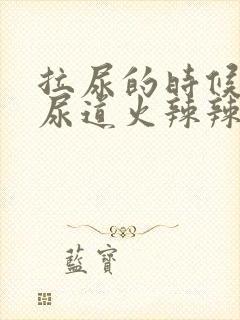 拉尿的時候
尿道火辣辣
藍寶